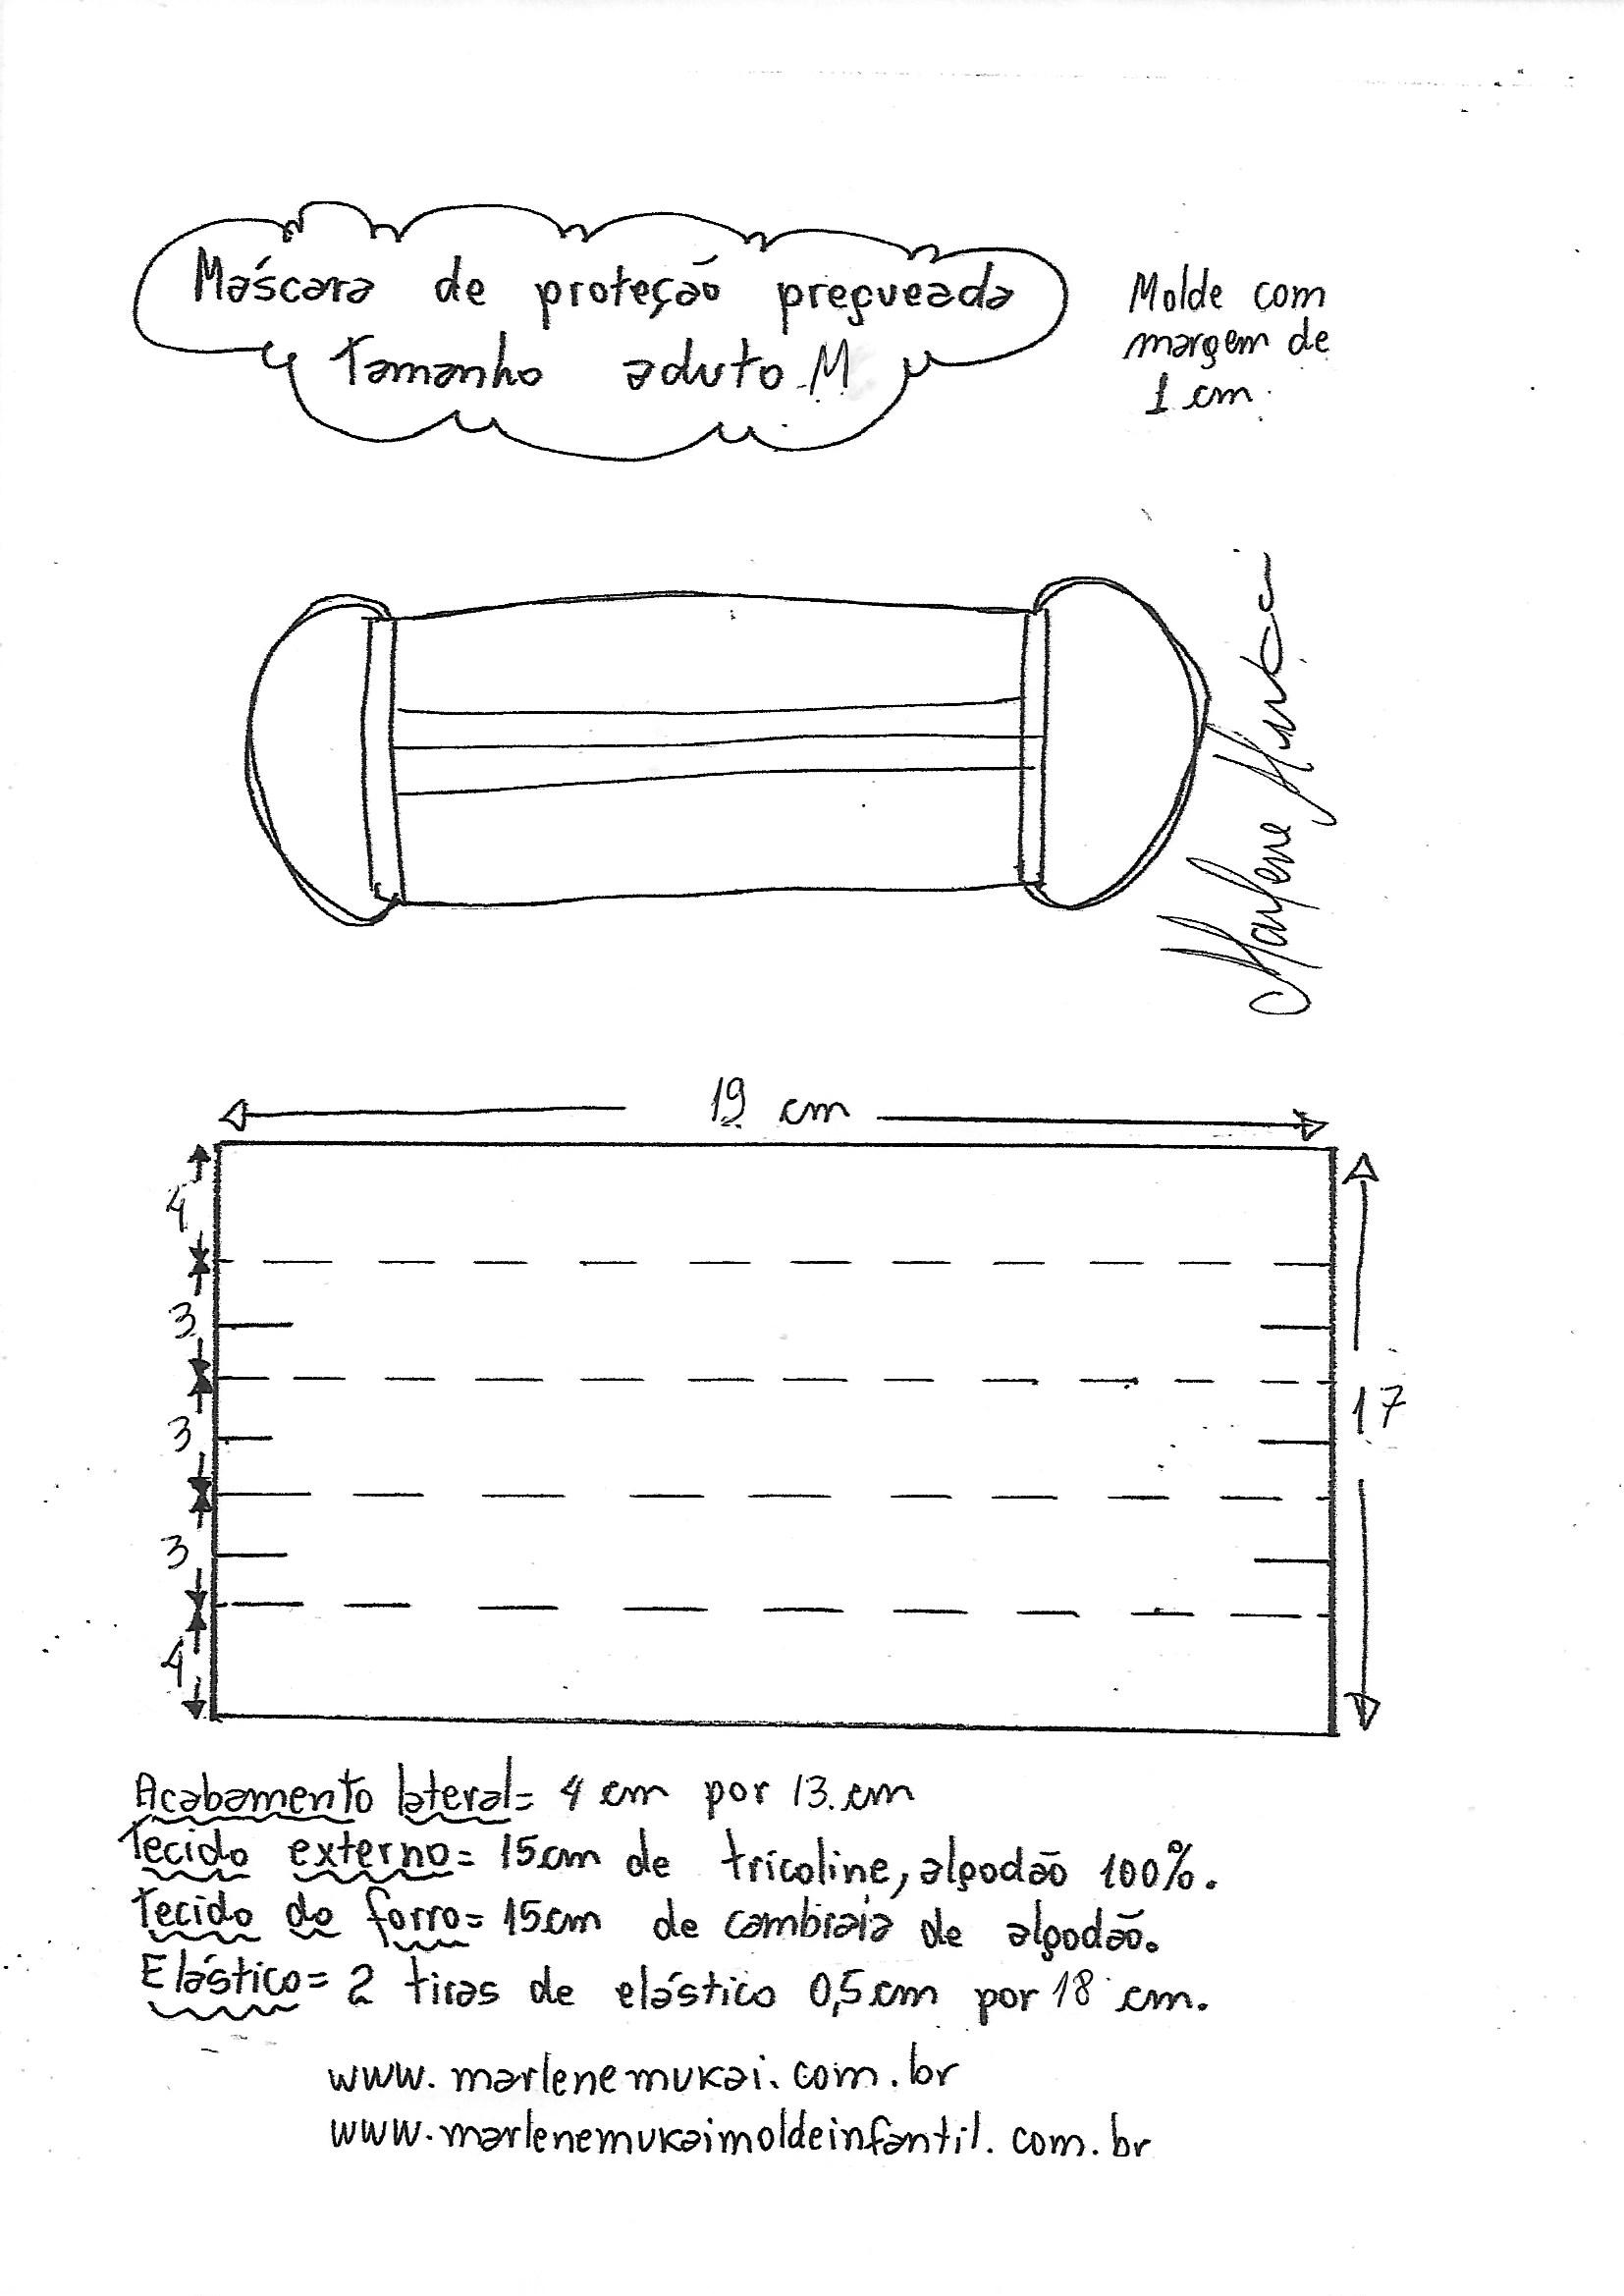 Máscara de proteção pregueada
Tamanho aduto M
Molde com
margem de
1 cm
Marlene Mukai
19 cm
4
3
3
3
4
17
Acabamento lateral= 4 cm por 13 cm
Tecido externo= 15cm de tricoline, algodão 100%.
Tecido do forro= 15cm de cambraia de algodão.
Elástico= 2 tiras de elástico 0,5cm por 18 cm.
www.marlenemukai.com.br
www.marlenemukaimoldeinfantil.com.br